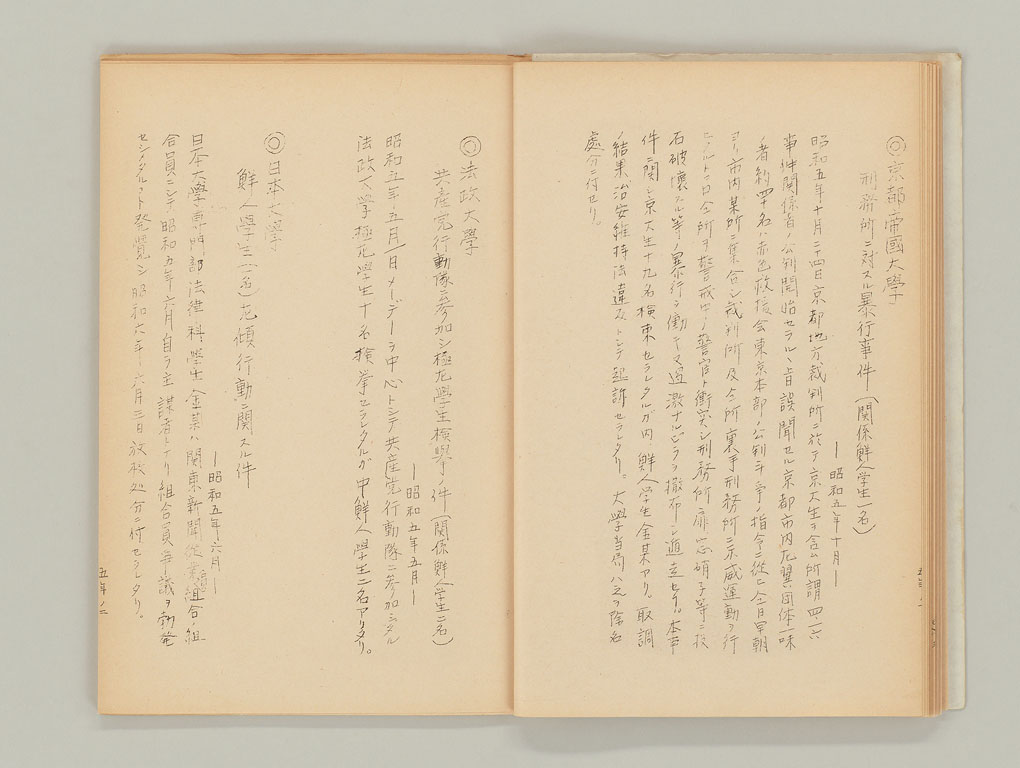 ◎京都帝國大學
刑務所ニ対スル暴行事件(関係鮮人学生一名)
―昭和五年十月―
昭和五年十月二十四日京都地方裁判所ニ於テ京大生ヲ含ム所謂四、一六
事件関係者ノ公判開始セラルヽ旨誤聞セル京都市内左翼団体一味
ノ者約四十名ハ赤色救援会東京本部ノ公判斗爭ノ指令ニ従ヒ仝日早朝
ヨリ市内某所ニ集合シ裁判所及仝所裏手刑務所ニ示威運動ヲ行
仝所ヲ警戒中ノ警官ト衝突シ刑務所扉窓硝子等ニ投
石破壊スル等ノ暴行ヲ働キ又過激ナルビラヲ撒布シ遁走セリ。本事
件ニ関シ京大生十九名検束セラレタルガ内、鮮人学生金某アリ。取調
ノ結果治安維持法違反トシテ起訴セラレタリ。大學当局ハ之ヲ除名
處分ニ付セリ。
◎法政大學
共産党行動隊ニ参加シ極左學生検擧ノ件(関係鮮人学生二名)
―昭和五年五月―
昭和五年五月一日メーデーヲ中心トシテ共産党行動隊ニ参加シタル
法政大学極左学生十名検挙セラレタルガ中鮮人學生二名アリタリ。
◎日本大学
鮮人學生(一名)左傾行動ニ関スル件
―昭和五年六月―
日本大學専門部法律科學生金某ハ関東新聞従業員組合ノ組
合員ニシテ昭和五年六月自ラ主謀者トナリ組合員爭議ヲ勃発
セシメタルコト発覚シ昭和六年六月三日放校処分ニ付セラレタリ。